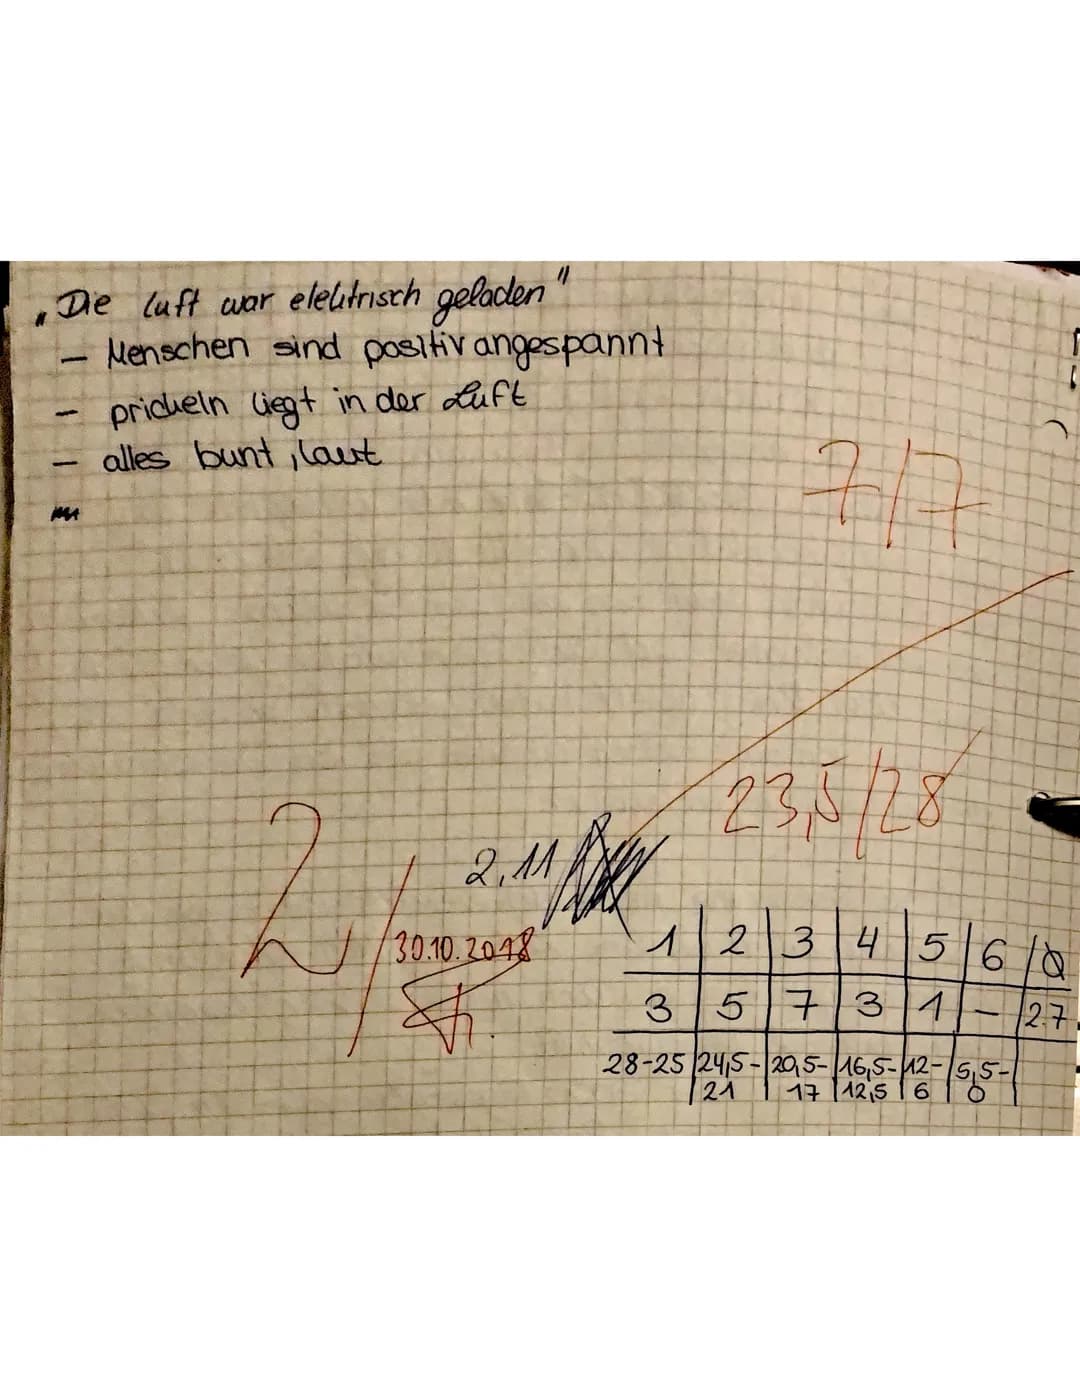 „Die Luft war elektrisch geladen"
- Menschen sind positiv angespannt
- prickeln liegt in der Luft
- alles bunt, laut
7/7
23,5/28
2
2,11
30.10.2018
1 2 3 4 5 6 Ø
3 5 7 3 1 - 2.7
28-25 24,5-21 20,5-17 16,5-12,5 12-6 5,5-0